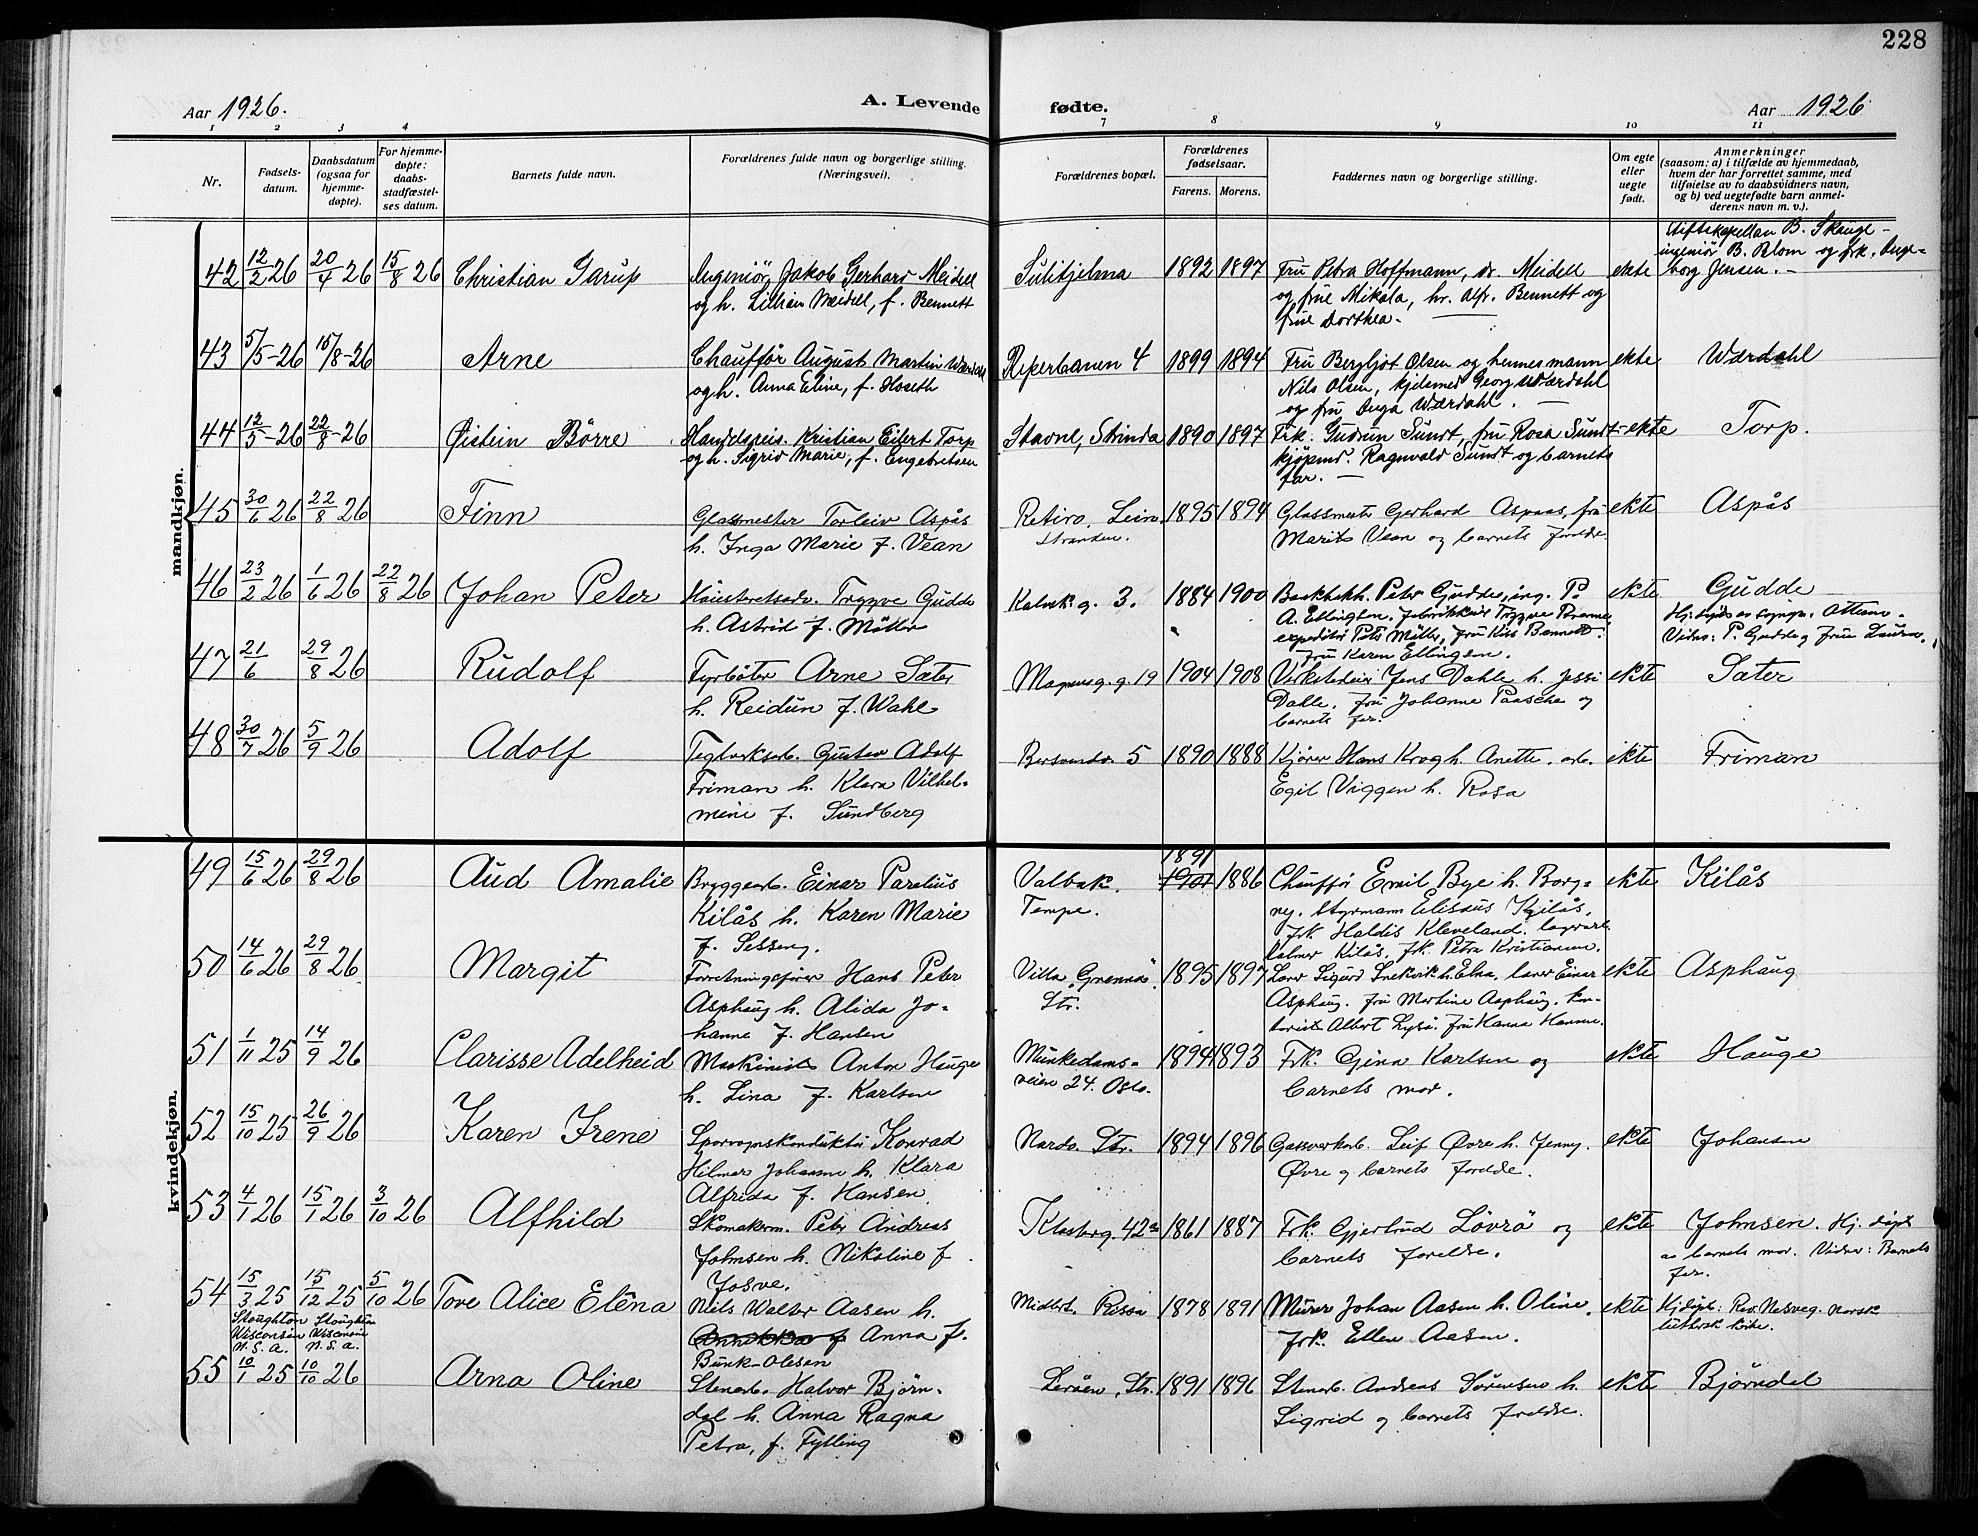 228
Aar 1926.
A. Levende
fødte.
Aar 1926
1 2 3 4 7 8 9 10 11
Nr.
Fødsels-
datum.
Daabsdatum
(ogsaa for
hjemme-
døpte).
For hjemme-
døpte:
daabs-
stadfæstel-
ses datum.
Barnets fulde navn.
Forældrenes fulde navn og borgerlige stilling.
(Næringsvei).
Forældrenes bopæl.
Forældrenes
fødselsaar.
Farens. Morens.
Faddernes navn og borgerlige stilling.
Om egte
eller
uegte
født.
Anmerkninger
(saasom: a) i tilfælde av hjemmedaab,
hvem der har forrettet samme, med
tilføielse av to daabsvidners navn,
og b) ved uegtefødte barn anmel-
derens navn m. v.).
mandkjøn.
42 12/2 26 20/4 26 15/8 26 Christian Garup
Ingeniør Jakob Gerhard Meidell
og h. Lillian Meidell, f. Bennett
Sulitjelma 1892 1897
Fru Petra Hoffmann, dr. Meidell
og frue Mikala, hr. Alf. Bennett og
frue Dorthea.
ekte
Stiftskapellan B. Skauge -
ingeniør B. Blom og frk. Inge-
borg Jensen. -
43 5/5-26 15/8-26 Arne
Chauffør August Martin Wærdahl
og h. Anna Eline, f. Hoseth
Reperbanen 4 1899 1894
Fru Bergljot Olsen og hennes mann
Nils Olsen, kjelsmed Georg Wærdahl
og fru Inga Wærdahl.
ekte Wærdahl
44 12/5-26 22/8-26 Øistein Børre
Handelsreis. Kristian Eilert Torp
og h. Sigrid Marie, f. Engebretsen
Stavne, Strinda 1890 1897
Frk. Gudrun Sundt, fru Rosa Sundt
kjøpmd. Ragnvald Sundt og barnets
far.
ekte Torp.
45 30/6 26 22/8 26 Finn
Glassmester Torleiv Aspås
h. Inga Marie f. Vean
Retiro, Leiro
stranden. 1895 1894
Glassmester Gerhard Aspaas, fru
Marit Vean og barnets foreldre.
ekte Aspås
46 23/2 26 1/6 26 22/8 26 Johan Peter
Høiesteretsadv. Trygve Gudde
h. Astrid f. Møller
Kalvsk.g. 3. 1884 1900
Bankbokh. Peter Gudde, ing. P.
A. Ellingsen, fabrikkeier Trygve
expeditør Petr Møller, fru Kiss Bennett.
fru Karen Ellingsen.
ekte Gudde
Vidne: P. Gudde og frue Laura.
47 21/6 29/8 26 Rudolf
Fyrbøter Arne Sæter
h. Reidun f. Wahl
Magnusg. g. 19 1904 1908
Verkstedeier Jens Dahle h. Jessi
Dahle, fru Johanne Paasche og
barnets far.
ekte Sæter
48 30/7 26 5/9 26 Adolf
Teglverksarb. Gustav Adolf
Friman h. Klara Vilhel-
mine f. Sundberg
Bersvendv. 5 1890 1888
Kjører Hans Krog h. Anette. arb.
Egil Viggen h. Rosa
ekte Friman
kvindekjøn.
49 15/6 26 29/8 26 Aud Amalie
Bryggearb. Einar Parelius
Kilås h. Karen Marie
f. Sesseng.
Valbak.
Tempe.
1891
1901 1886
Chauffør Emil Bye h. Borg-
ny. Styrmann Elisæus Kjilås,
frk. Haldis Kleveland.
Kilås, frk. Petra Kristiansen.
ekte Kilås
50 14/6 26 29/8 26 Margit
Forretningsfører Hans Peter
Asphaug h. Alida Jo-
hanne f. Hansen
Villa "Grennås"
Str. 1895 1897
Lærer Sigurd Snekvik h. Elna, lærer Einar
Asphaug. fru Martine Asphaug. kon-
torist Albert Lysø. fru Hanna Hansen.
ekte Asphaug
51 1/11 25 14/9 26 Clarisse Adelheid
Maskinist Anton Hauge
h. Lina f. Karlsen
Munkedams-
veien 24. Oslo. 1894 1893
Frk. Gjina Karlsen og
barnets mor.
ekte Hauge
52 15/10 25 26/9 26 Karen Irene
Sporvognskonduktør Konrad
Hilmar Johansen h. Klara
Alfrida f. Hansen.
Nardo. Str. 1894 1896
Gassverkarb. Leif Øvre h. Jenny
Øvre og barnets foreldre.
ekte Johansen
53 4/1 26 15/1 26 3/10 26 Alfhild
Skomakerm. Peter Andreas
Johnsen h. Nikoline f.
Josve.
Klosterg. 42a 1861 1887
Frk. Gjertrud Løvrø og
barnets foreldre.
ekte
Johnsen. Hj. døpt
av barnets mor. Vidner: Barnets
far.
54 15/3 25 15/12 25 5/10 26 Tove Alice Elena
Stoughton Stoughton
Wisconsin Wisconsin
U. S. A. U. S. A.
Niels Walter Aasen h.
Anna f.
Bunk-Olesen
Midlert. Rissa 1878 1891
Murer Johan Aasen h. Oline.
frk. Ellen Aasen.
ekte
Hj.døpt: Rev. Nesveg. Norsk
luthersk kirke.
55 10/1 25 10/10 26 Arna Oline
Stenarb. Halvor Bjørn-
dal h. Anna Ragna
Petra, f. Fylling
Leråen, Str. 1891 1896
Stenarb. Andreas Sørensen h.
Sigrid og barnets foreldre.
ekte Bjørndal